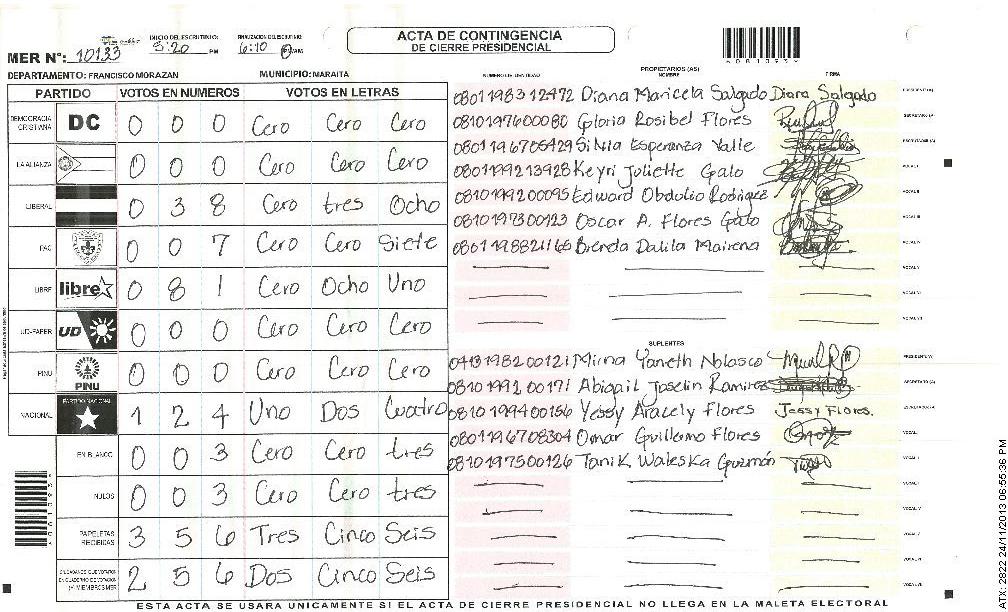 ACTA DE CONTINGENCIA
DE CIERRE PRESIDENCIAL
INICIO DEL ESCRUTINIO: 5:20 PM
FINALIZACION DEL ESCRUTINIO: 6:10
MER N°: 10133
DEPARTAMENTO: FRANCISCO MORAZAN MUNICIPIO: MARAITA
PARTIDO VOTOS EN NUMEROS VOTOS EN LETRAS
DEMOCRACIA CRISTIANA DC 0 0 0 Cero Cero Cero
LA ALIANZA 0 0 0 Cero Cero Cero
LIBERAL 0 3 8 Cero tres Ocho
PAC 0 0 7 Cero Cero Siete
LIBRE libre 0 8 1 Cero Ocho Uno
UD-FAPER UD 0 0 0 Cero Cero Cero
PINU PINU 0 0 0 Cero Cero Cero
NACIONAL PARTIDO NACIONAL 1 2 4 Uno Dos Cuatro
EN BLANCO 0 0 3 Cero Cero tres
NULOS 0 0 3 Cero Cero tres
PAPELETAS RECIBIDAS 3 5 6 Tres Cinco Seis
2 5 6 Dos Cinco Seis
NUMERO DE IDENTIDAD PROPIETARIOS (AS) NOMBRE FIRMA
0801198312472 Diana Maricela Salgado Diana Salgado PRESIDENTE(A)
0810197600080 Gloria Rosibel Flores SECRETARIO (A)
0801196705429 Silvia Esperanza Valle ESCRUTADOR (A)
0801199213928 Keyri Juliette Galo VOCAL I
0810199200095 Edward Obdulio Rodriguez VOCAL II
0810197300123 Oscar A. Flores Galo VOCAL III
0801198821166 Brenda Dalila Mairena VOCAL IV
VOCAL V
VOCAL VI
VOCAL VII
SUPLENTES
0413198200121 Mirna Yaneth Nolasco PRESIDENTE(A)
0810199200171 Abigail Joselin Ramirez SECRETARIO (A)
0810199400156 Yessy Aracely Flores Jessy Flores. ESCRUTADOR (A)
0801196708304 Omar Guillermo Flores VOCAL I
0810197500126 Tanik Waleska Guzmán VOCAL II
VOCAL III
VOCAL IV
VOCAL V
VOCAL VI
VOCAL VII
ESTA ACTA SE USARA UNICAMENTE SI EL ACTA DE CIERRE PRESIDENCIAL NO LLEGA EN LA MALETA ELECTORAL
2822 24/11/2013 06:55:36 PM